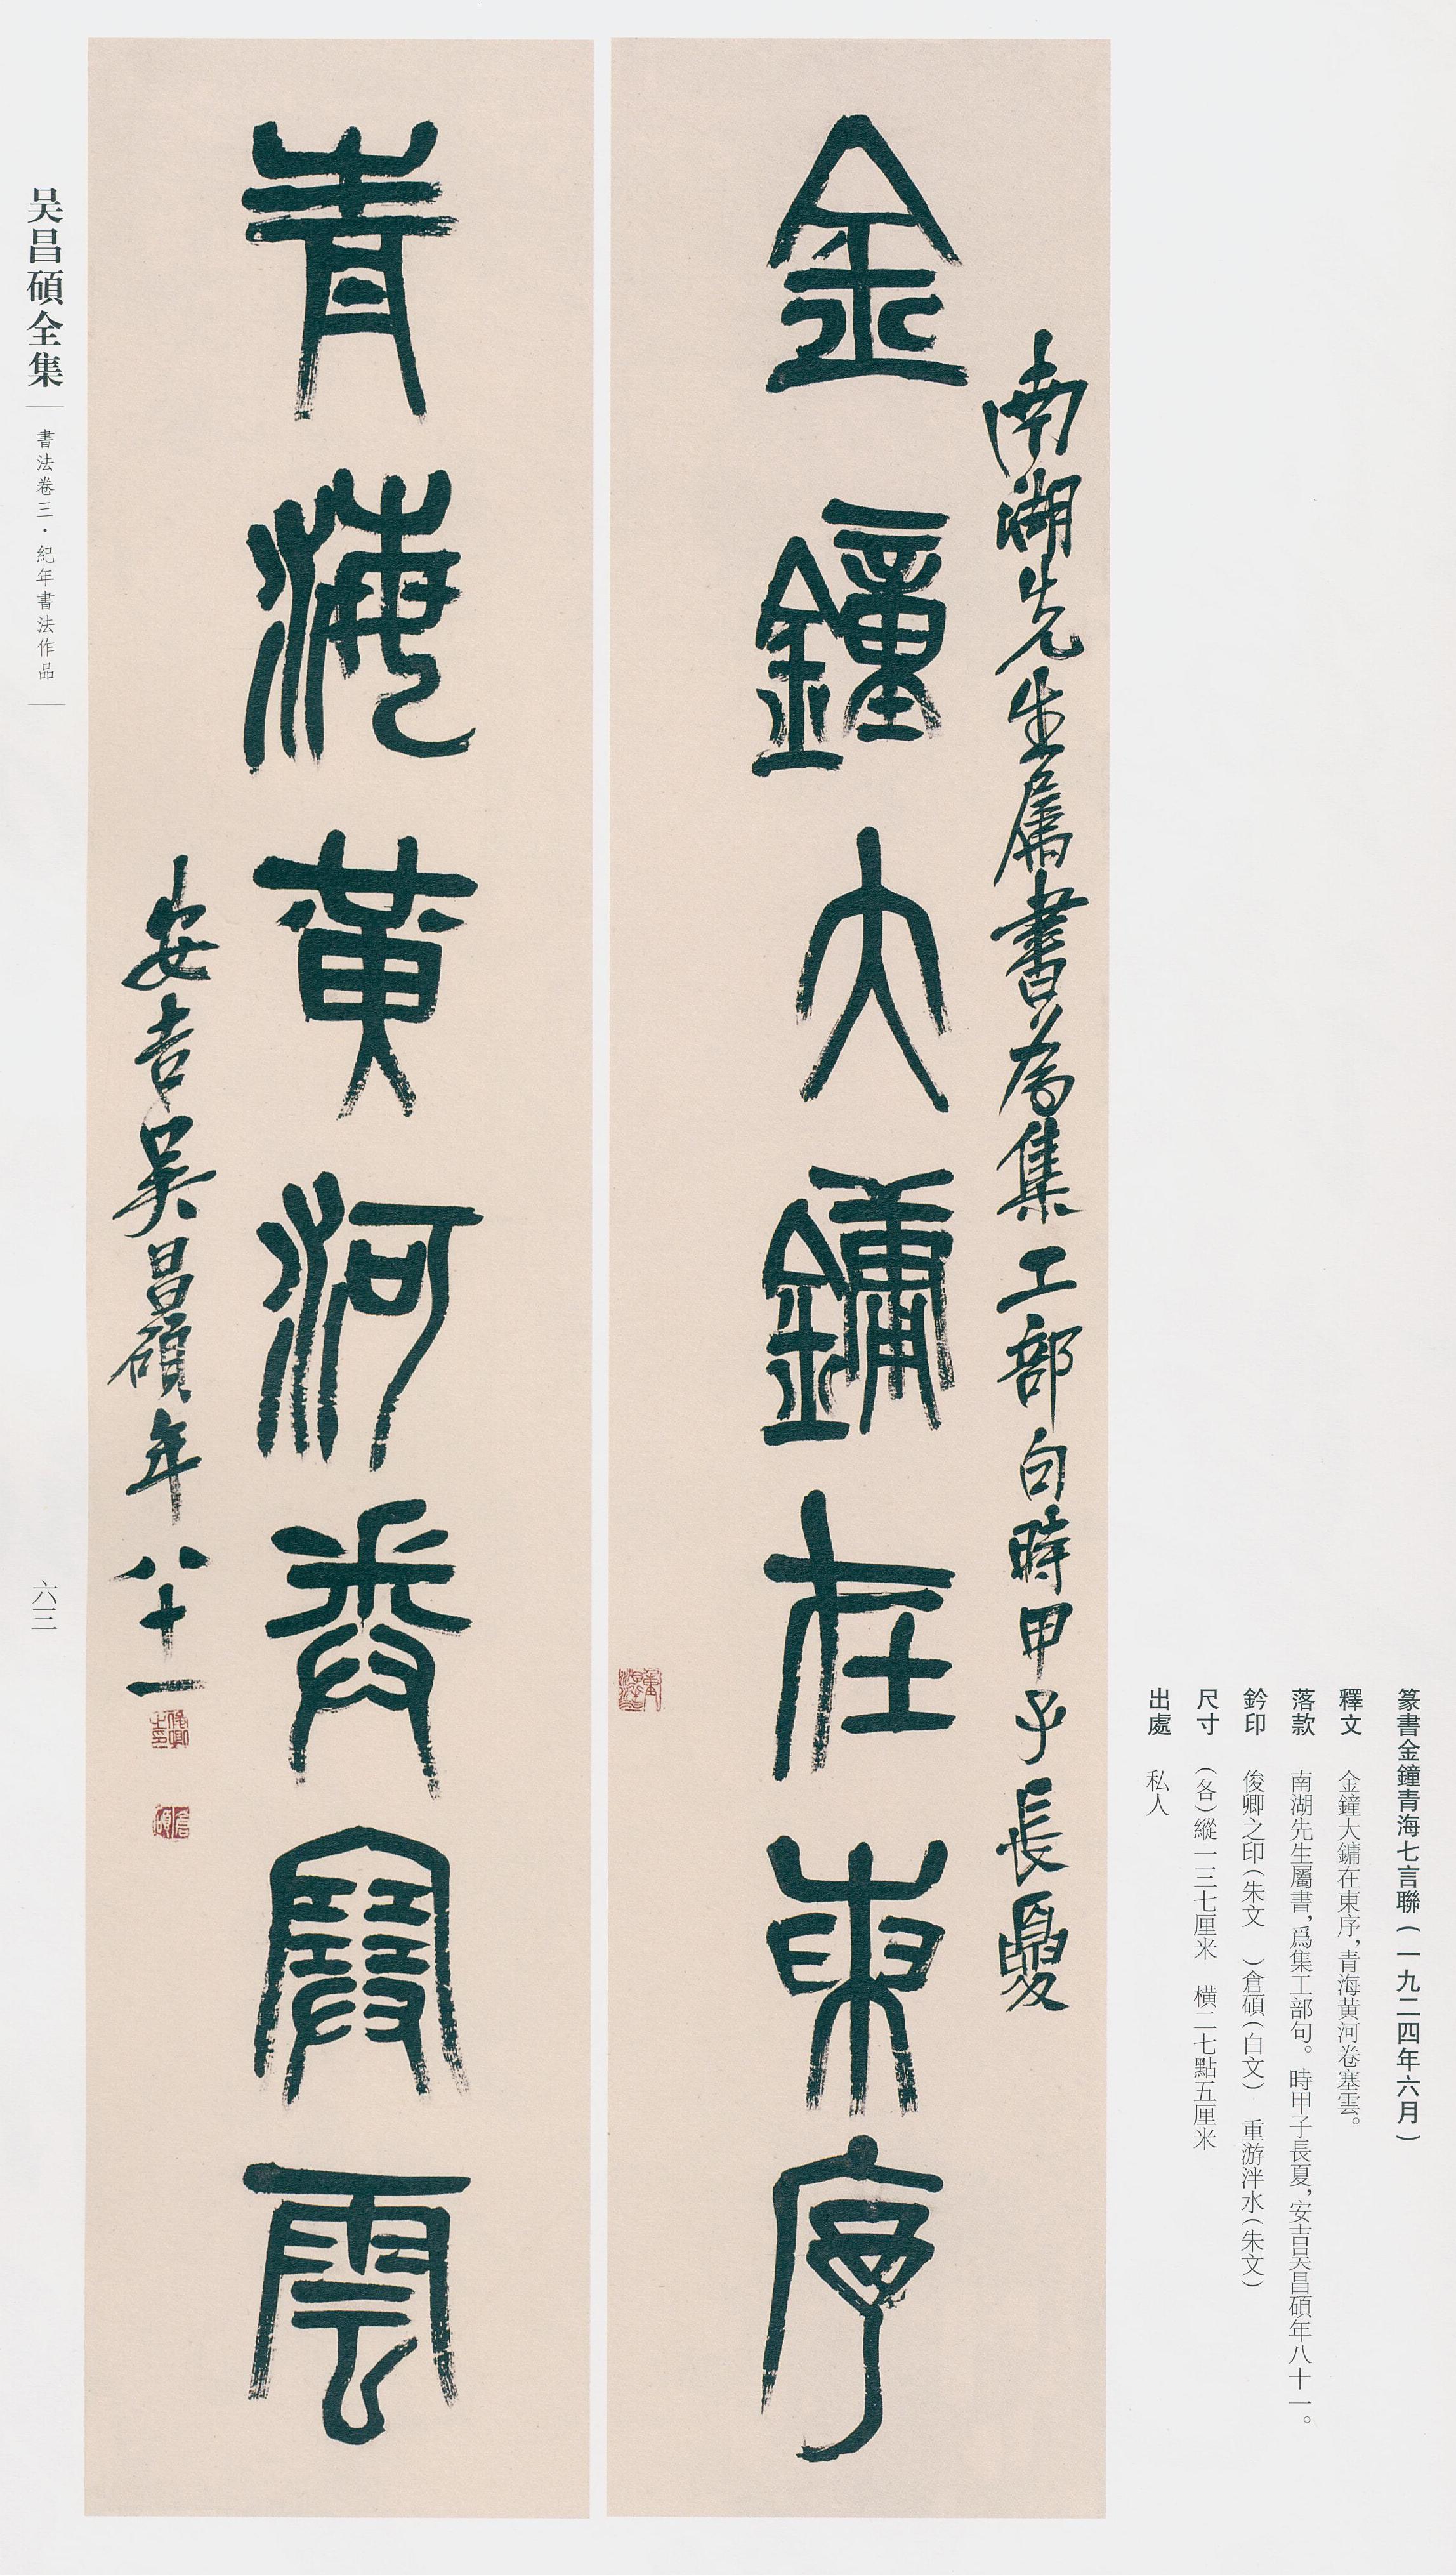 篆書金鐘青海七言聯(一九二四年六月)
釋文 金鐘大鏞在東序,青海黄河卷塞雲。
落款 南湖先生屬書,爲集工部句。時甲子長夏,安吉吴昌碩年八十一。
鈐印 俊卿之印(朱文 )倉碩(白文) 重游泮水(朱文)
尺寸 (各)縱一三七厘米 横二七點五厘米
出處 私人
南湖先生屬書為集工部句時甲子長夏
金鐘大鏞在東序
重游泮水
青海黄河卷塞雲
安吉吳昌碩年八十一
俊卿之印
倉碩
吴昌碩全集
書法卷三·紀年書法作品
六三